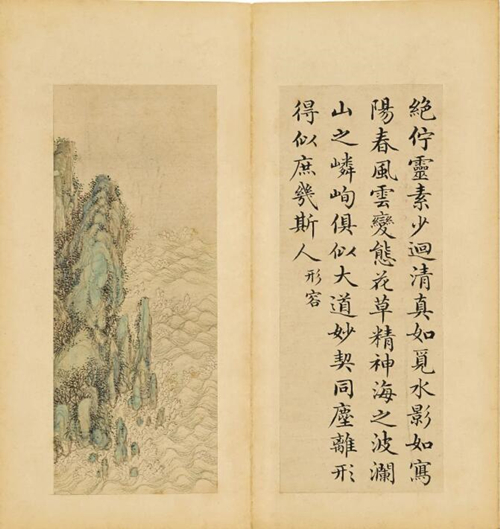 絕佇靈素少迴清真如覓水影如寫
陽春風雲變態花草精神海之波瀾
山之嶙峋俱似大道妙契同塵離形
得似庶幾斯人形容